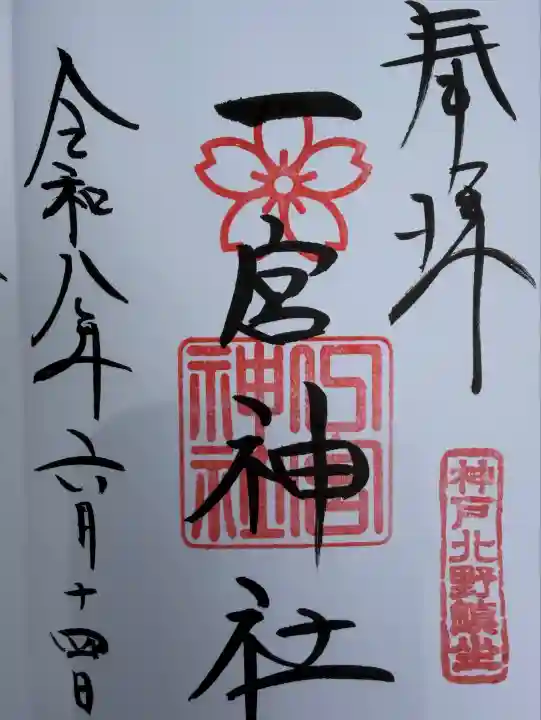 奉拝
神戸北野鎮坐
一宮神社
一宮神社
令和八年六月十四日